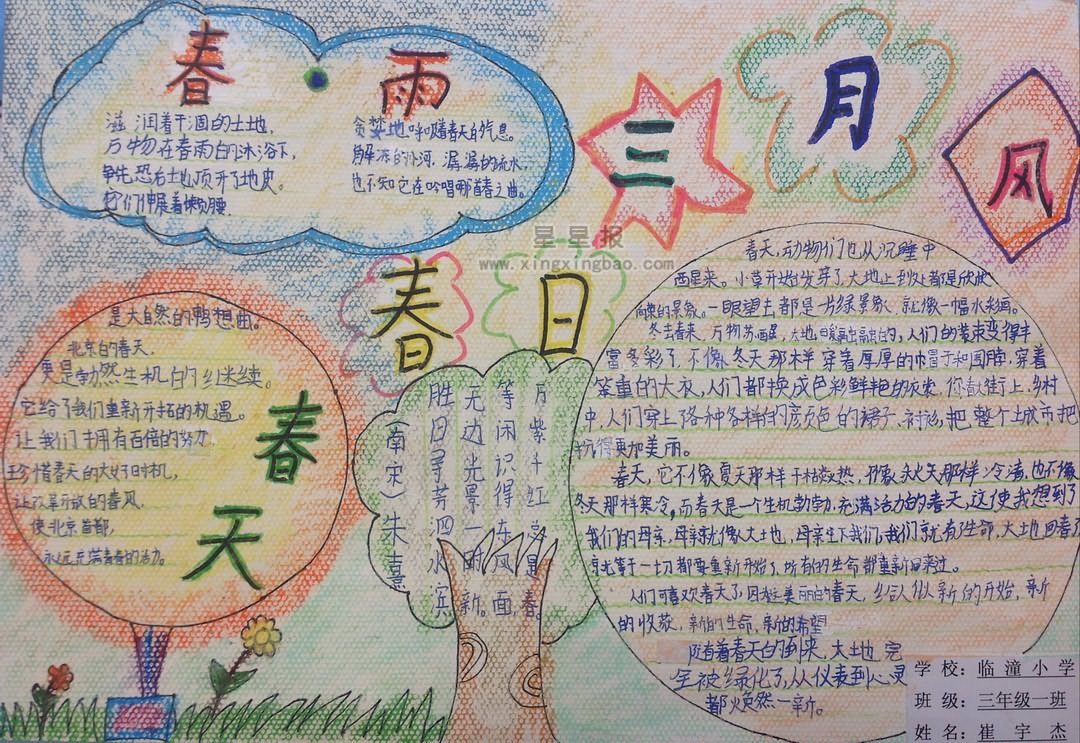 春
雨
滋润着干涸的土地,
万物在春雨的沐浴下,
争先恐后土地顶开了地皮。
它们伸展着懒腰.
贪婪地呼吸着春天的气息。
解冻的冰河,潺潺的流水,
也不知它在吟唱哪首春之曲。
三
月
风
星星报
www.xingxingbao.com
春
日
万紫千红总是春。
等闲识得东风面,
无边光景一时新。
胜日寻芳泗水滨
(南宋)朱熹
是大自然的鸭想曲。
北京的春天,
更是勃然生机的继续。
它给了我们重新开拓的机遇。
让我们拥有百倍的努力
珍惜春天的大好时机,
让改革开放的春风,
使北京首都,
永远充满青春的活力。
春
天
春天,动物们也从沉睡中
西星来。小草开始发芽了,大地上到处都是欣
向荣的景象。一眼望去都是一片绿景象,就像一幅水彩画。
冬去春来,万物苏醒,大地暖融融的,人们的装束变得丰
富多彩了,不像冬天那样穿着厚厚的帽子和围脖,穿着
笨重的大衣,人们都换成色彩鲜艳的衣裳,你看街上,乡村
中,人们穿上了各种各样的颜色的裙子、衬衫,把整个城市打
扮得更加美丽。
春天,它不像夏天那样干燥炎热,不像秋天那样冷清,也不像
冬天那样寒冷,而春天是一个生机勃勃,充满活力的春天,这使我想到了
我们的母亲,母亲就像大地,母亲生下我们,我们就有生命,大地回春了
就等于一切都要重新开始了,所有的生命都重新回来过。
人们可喜欢春天了,因为美丽的春天,给人们以新的开始,新
的收获,新的生命,新的希望
随着春天的到来,大地完
全被绿化了,从仪表到心灵
都焕然一新。
学校:临潼小学
班级:三年级一班
姓名:崔宇杰